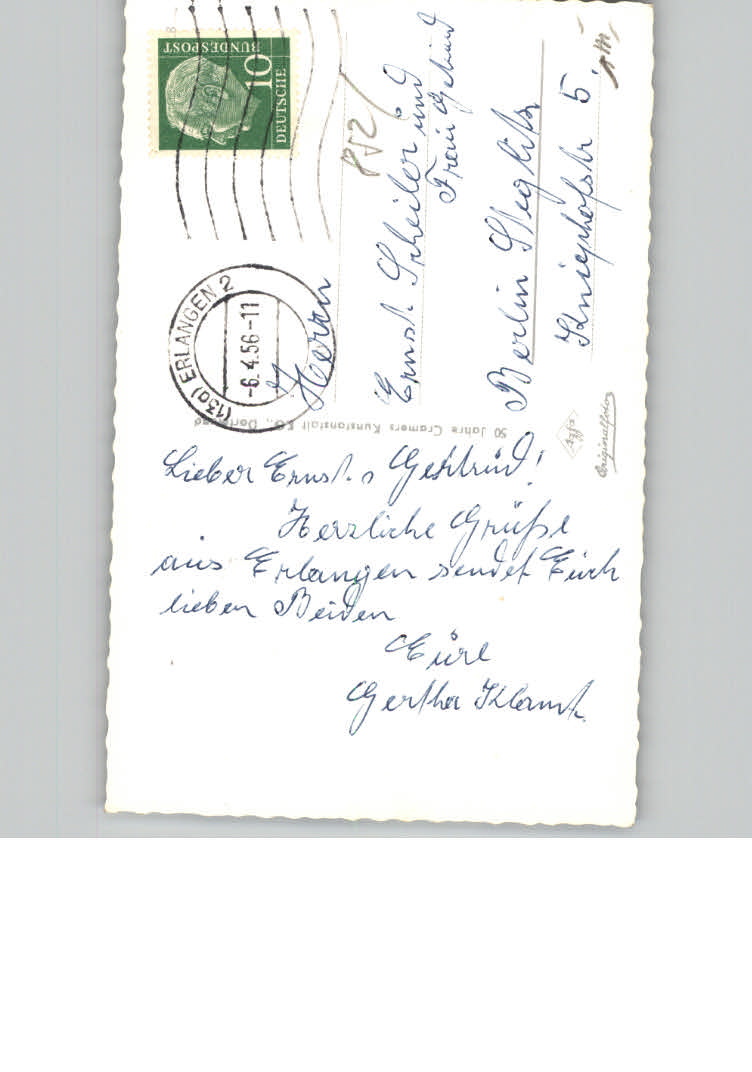 DEUTSCHE
BUNDESPOST
10
(13a) ERLANGEN 2
-6.4.56-11
Herrn
Ernst Scheiler und
Frau
Berlin Steglitz
Kniephofstr 5.
50 Jahre Cramers Kunstanstalt KG.,
Agfa
Originalfoto
Lieber Ernst
Herzliche Grüße
aus Erlangen sendet Euch
lieben Beiden
Eure
Gertha